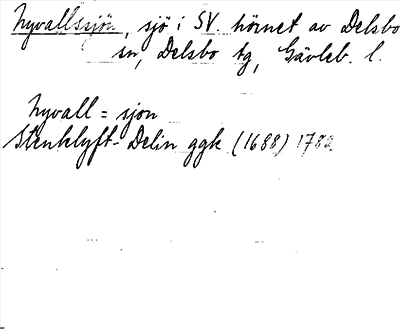 Nyvallssjön, sjö i SV. hörnet av Delsbo
sn, Delsbo tg, Gävleb. l.
Nyvall = sjon
Stenklyft- Delin ggk (1688) 1782